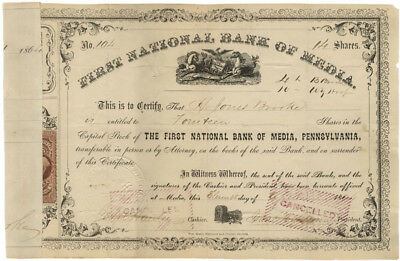 186
No. 104
14 Shares.
FIRST NATIONAL BANK OF MEDIA.
This is to Certify, That H. Jones Brooke
is entitled to Fourteen Shares in the
Capital Stock of THE FIRST NATIONAL BANK OF MEDIA, PENNSYLVANIA,
transferable in person or by Attorney, on the books of the said Bank, and on surrender
of this Certificate.
In Witness Whereof, the seal of the said Bank, and the
signatures of the Cashier and President, have been hereunto affixed
at Media, this day of
CANCELLED
CANCELLED
Cashier.
President.